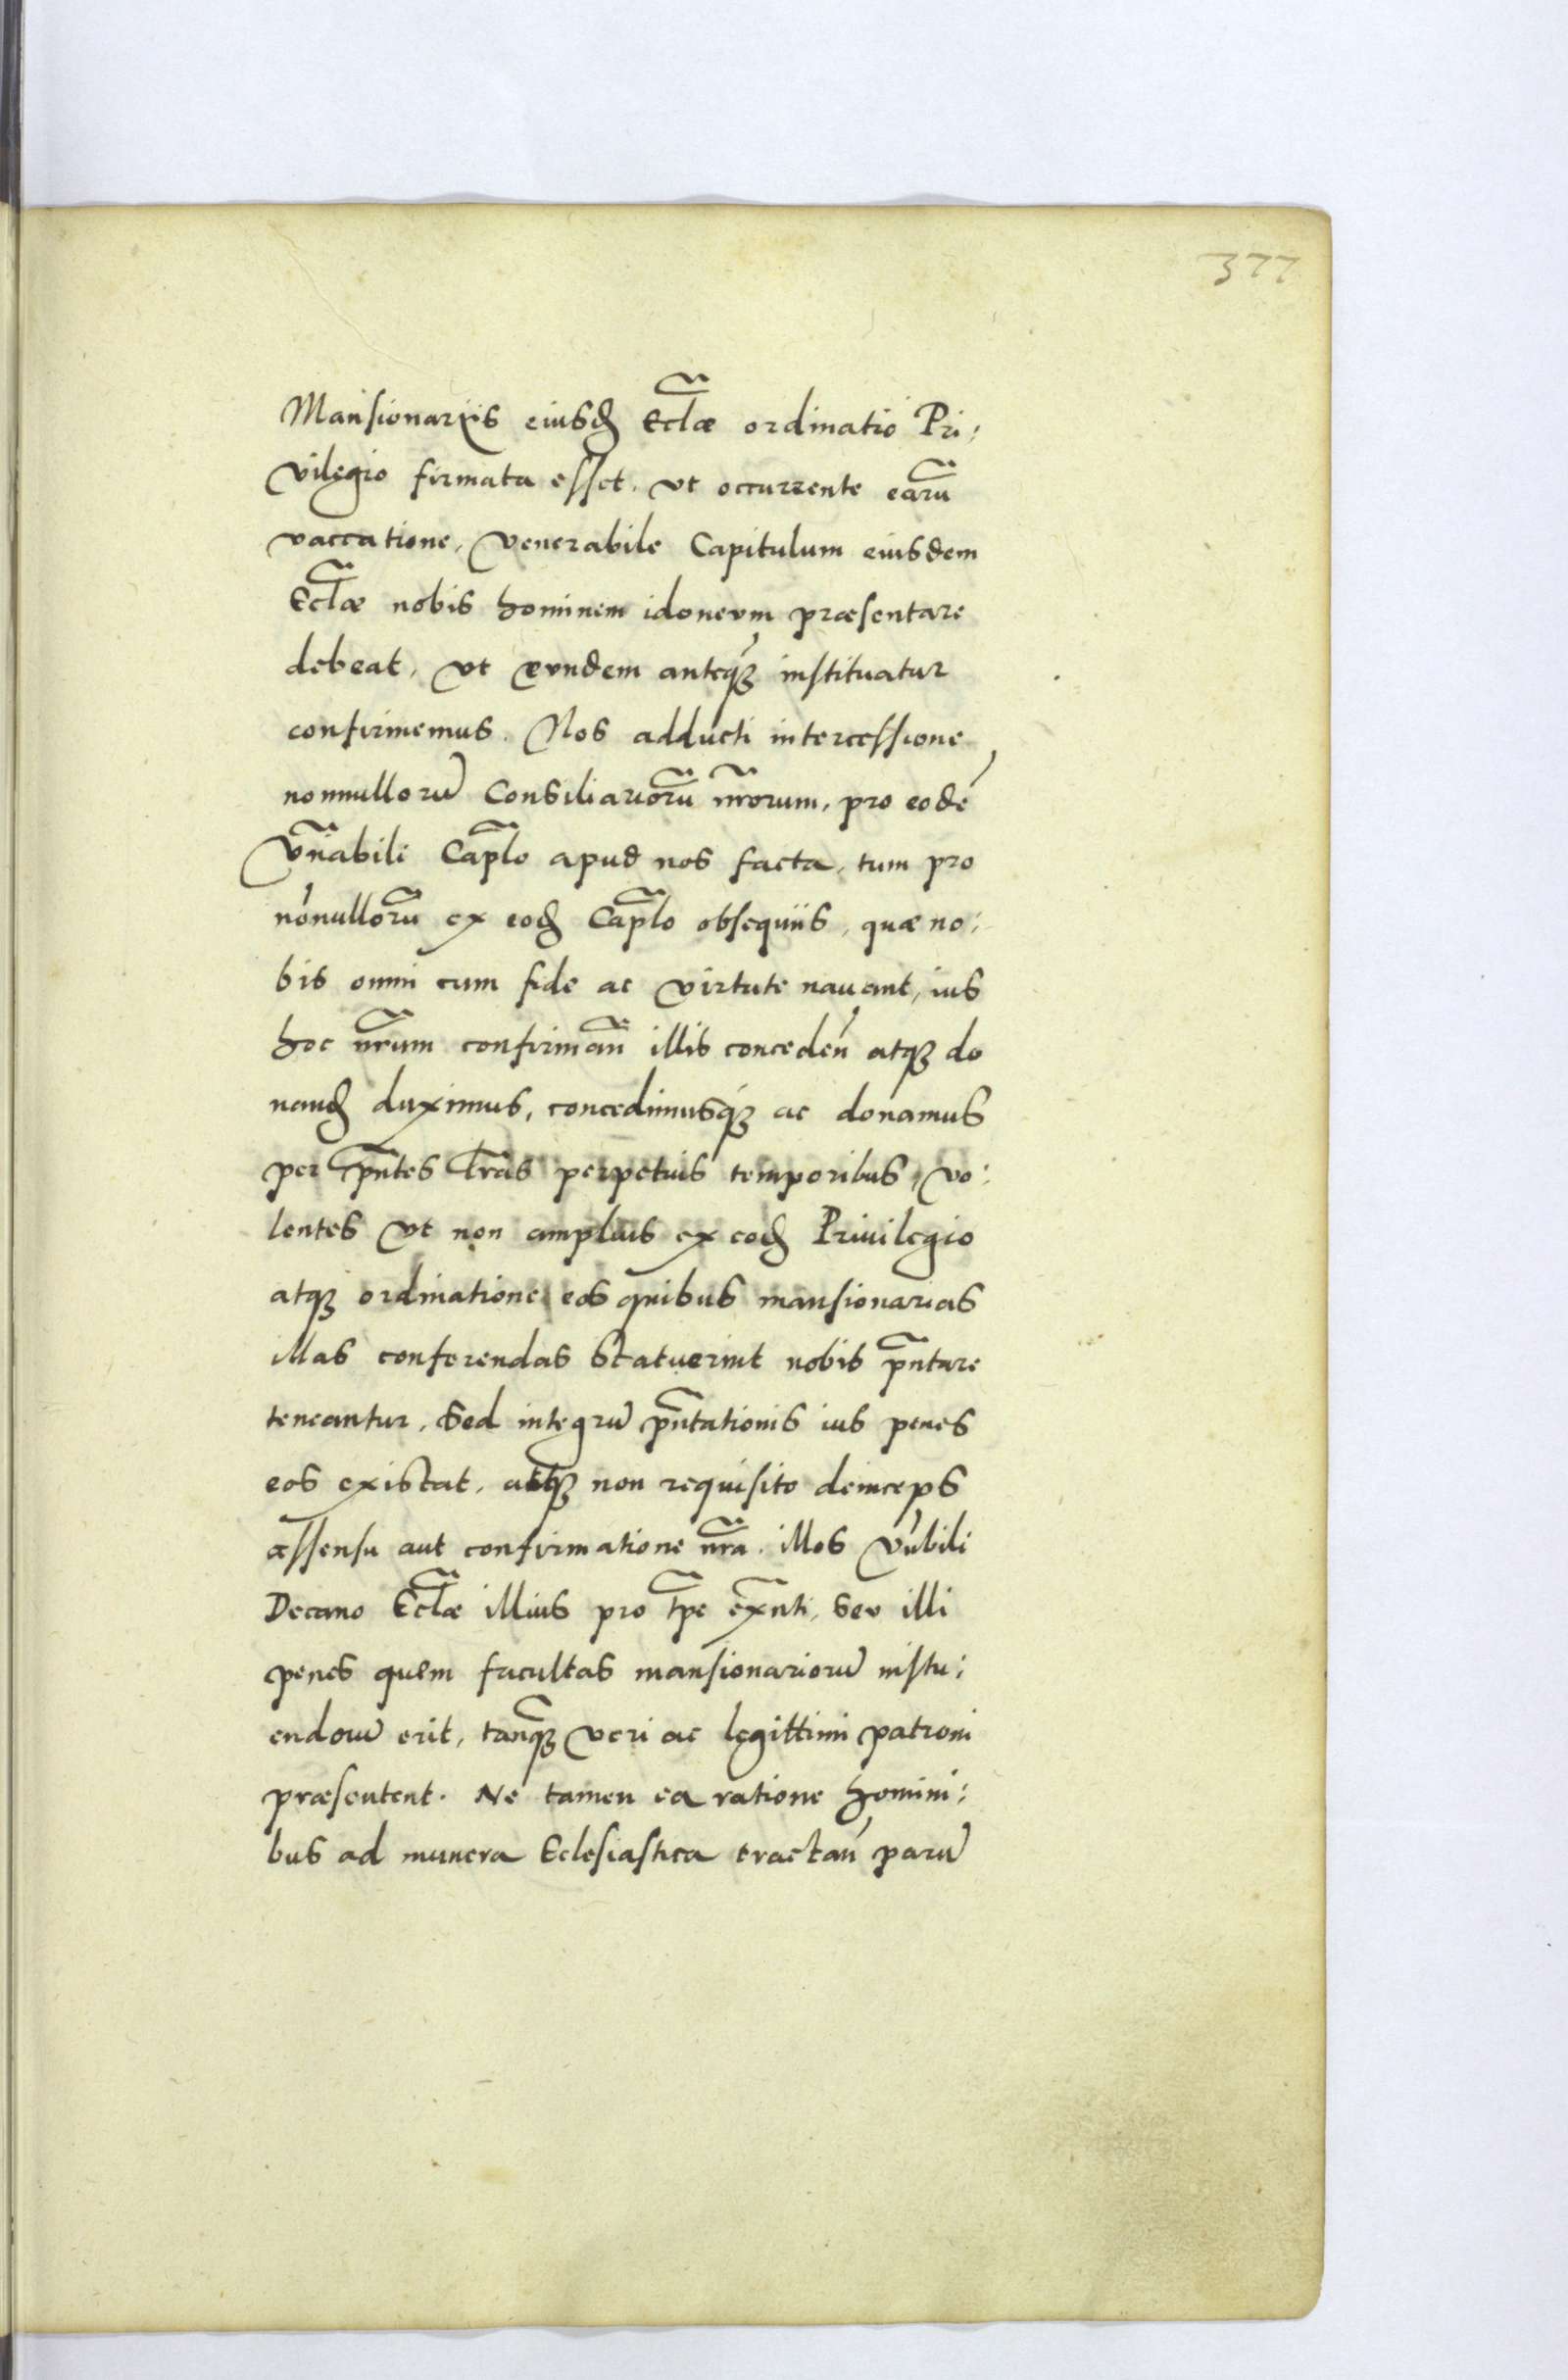 377
Mansionariis eiusđ Eclæ ordinatio Pri:
vilegio firmata esset. vt occurrente earū
vaccatione, venerabile Capitulum eiusdem
Eclæ nobis hominem idoneum præsentare
debeat, vt eundem anteq̃ȝ instituatur
confirmemus. Nos adducti intercessione
nonnullorū Consiliariorū nr̃orum, pro eodē
Vn̄abili Cap̃lo apud nos facta, tum pro
nōnullorū ex eođ Cap̃lo obsequiis, quæ no:
bis omni cum fide ac virtute nauant, ius
hoc nr̃um confirmañ illis conceđeñ atqȝ do
nanđ duximus, concedimusqȝ ac donamus
per p̃ntes l̃ras perpetuis temporibus, vo:
lentes vt non amplius ex eođ Priuilegio
atqȝ ordinatione eos quibus mansionarias
illas conferendas statuerint nobis p̃ntare
teneantur. Sed integrū p̃ntationis ius penes
eos existat, atqȝ non requisito deinceps
assensu aut confirmatione nr̃a. illos Vn̄bili
Decano Eclæ illius pro tp̃e ex̃nti, seu illi
penes quem facultas mansionariorū institu:
endorū erit, tanq̃ȝ veri ac legittimi patroni
præsentent. Ne tamen ea ratione homini:
bus ad munera Eclesiastica tractañ parū